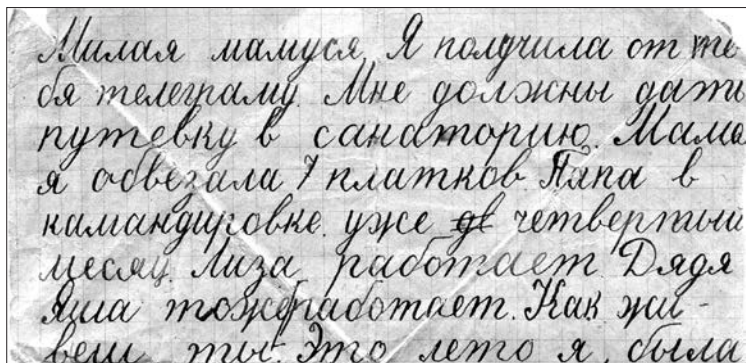 Милая мамуся, Я получила от те-
бя телеграму. Мне должны дать
путевку в санаторию. Мама
я обвезала 7 платков. Папа в
камандировке. уже четвертый
месяц. Лиза работает. Дядя
Яша тоже работает. Как жи-
веш ты. Это лето я была